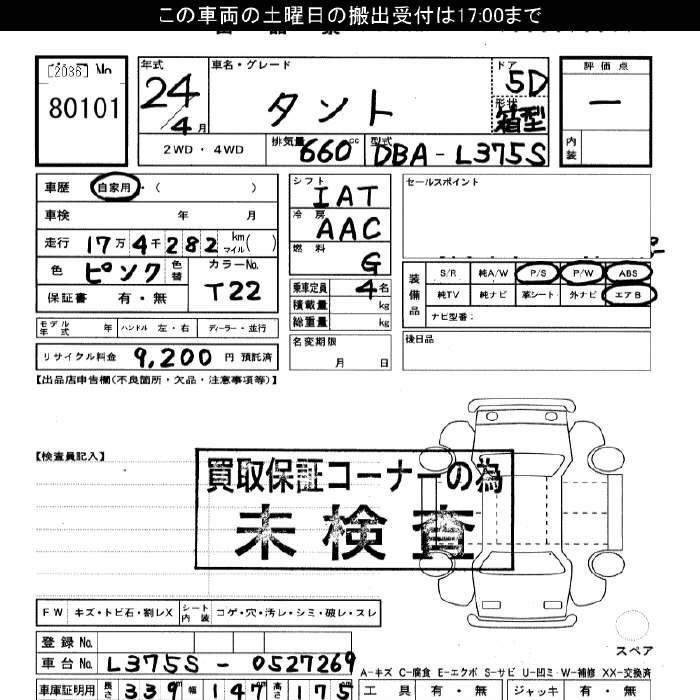 この車両の土曜日の搬出受付は17:00まで
[2036] No
80101
年式 車名・グレード ドア 評価点
24 タント 5D
4月 形状 箱型 —
2WD・4WD 排気量 660cc 型式 DBA-L375S 内装
車歴 自家用・( )
シフト IAT
セールスポイント
車検 年 月
冷房 AAC
走行 17万4千282 km マイル( )
燃料 G
色 ピンク 色替 カラーNo. T22
保証書 有・無
乗車定員 4名
積載量 kg
総重量 kg
装備品 S/R 純A/W P/S P/W ABS
純TV 純ナビ 革シート 外ナビ エアB
ナビ型番:
モデル年式 年 ハンドル 左・右 ディーラー・並行
名変期限 月 日
後日品
リサイクル料金 9,200 円 預託済
【出品店申告欄(不良箇所・欠品・注意事項等)】
【検査員記入】
買取保証コーナーの為
未検査
FW キズ・トビ石・割レX シート内装 コゲ・穴・汚レ・シミ・破レ・スレ
スペア
登録No.
車台No. L375S-0527269
A-キズ C-腐食 E-エクボ S-サビ U-凹ミ W-補修 XX-交換済
車庫証明用 長さ 339 幅 147 高さ 175
工具 有・無 ジャッキ 有・無